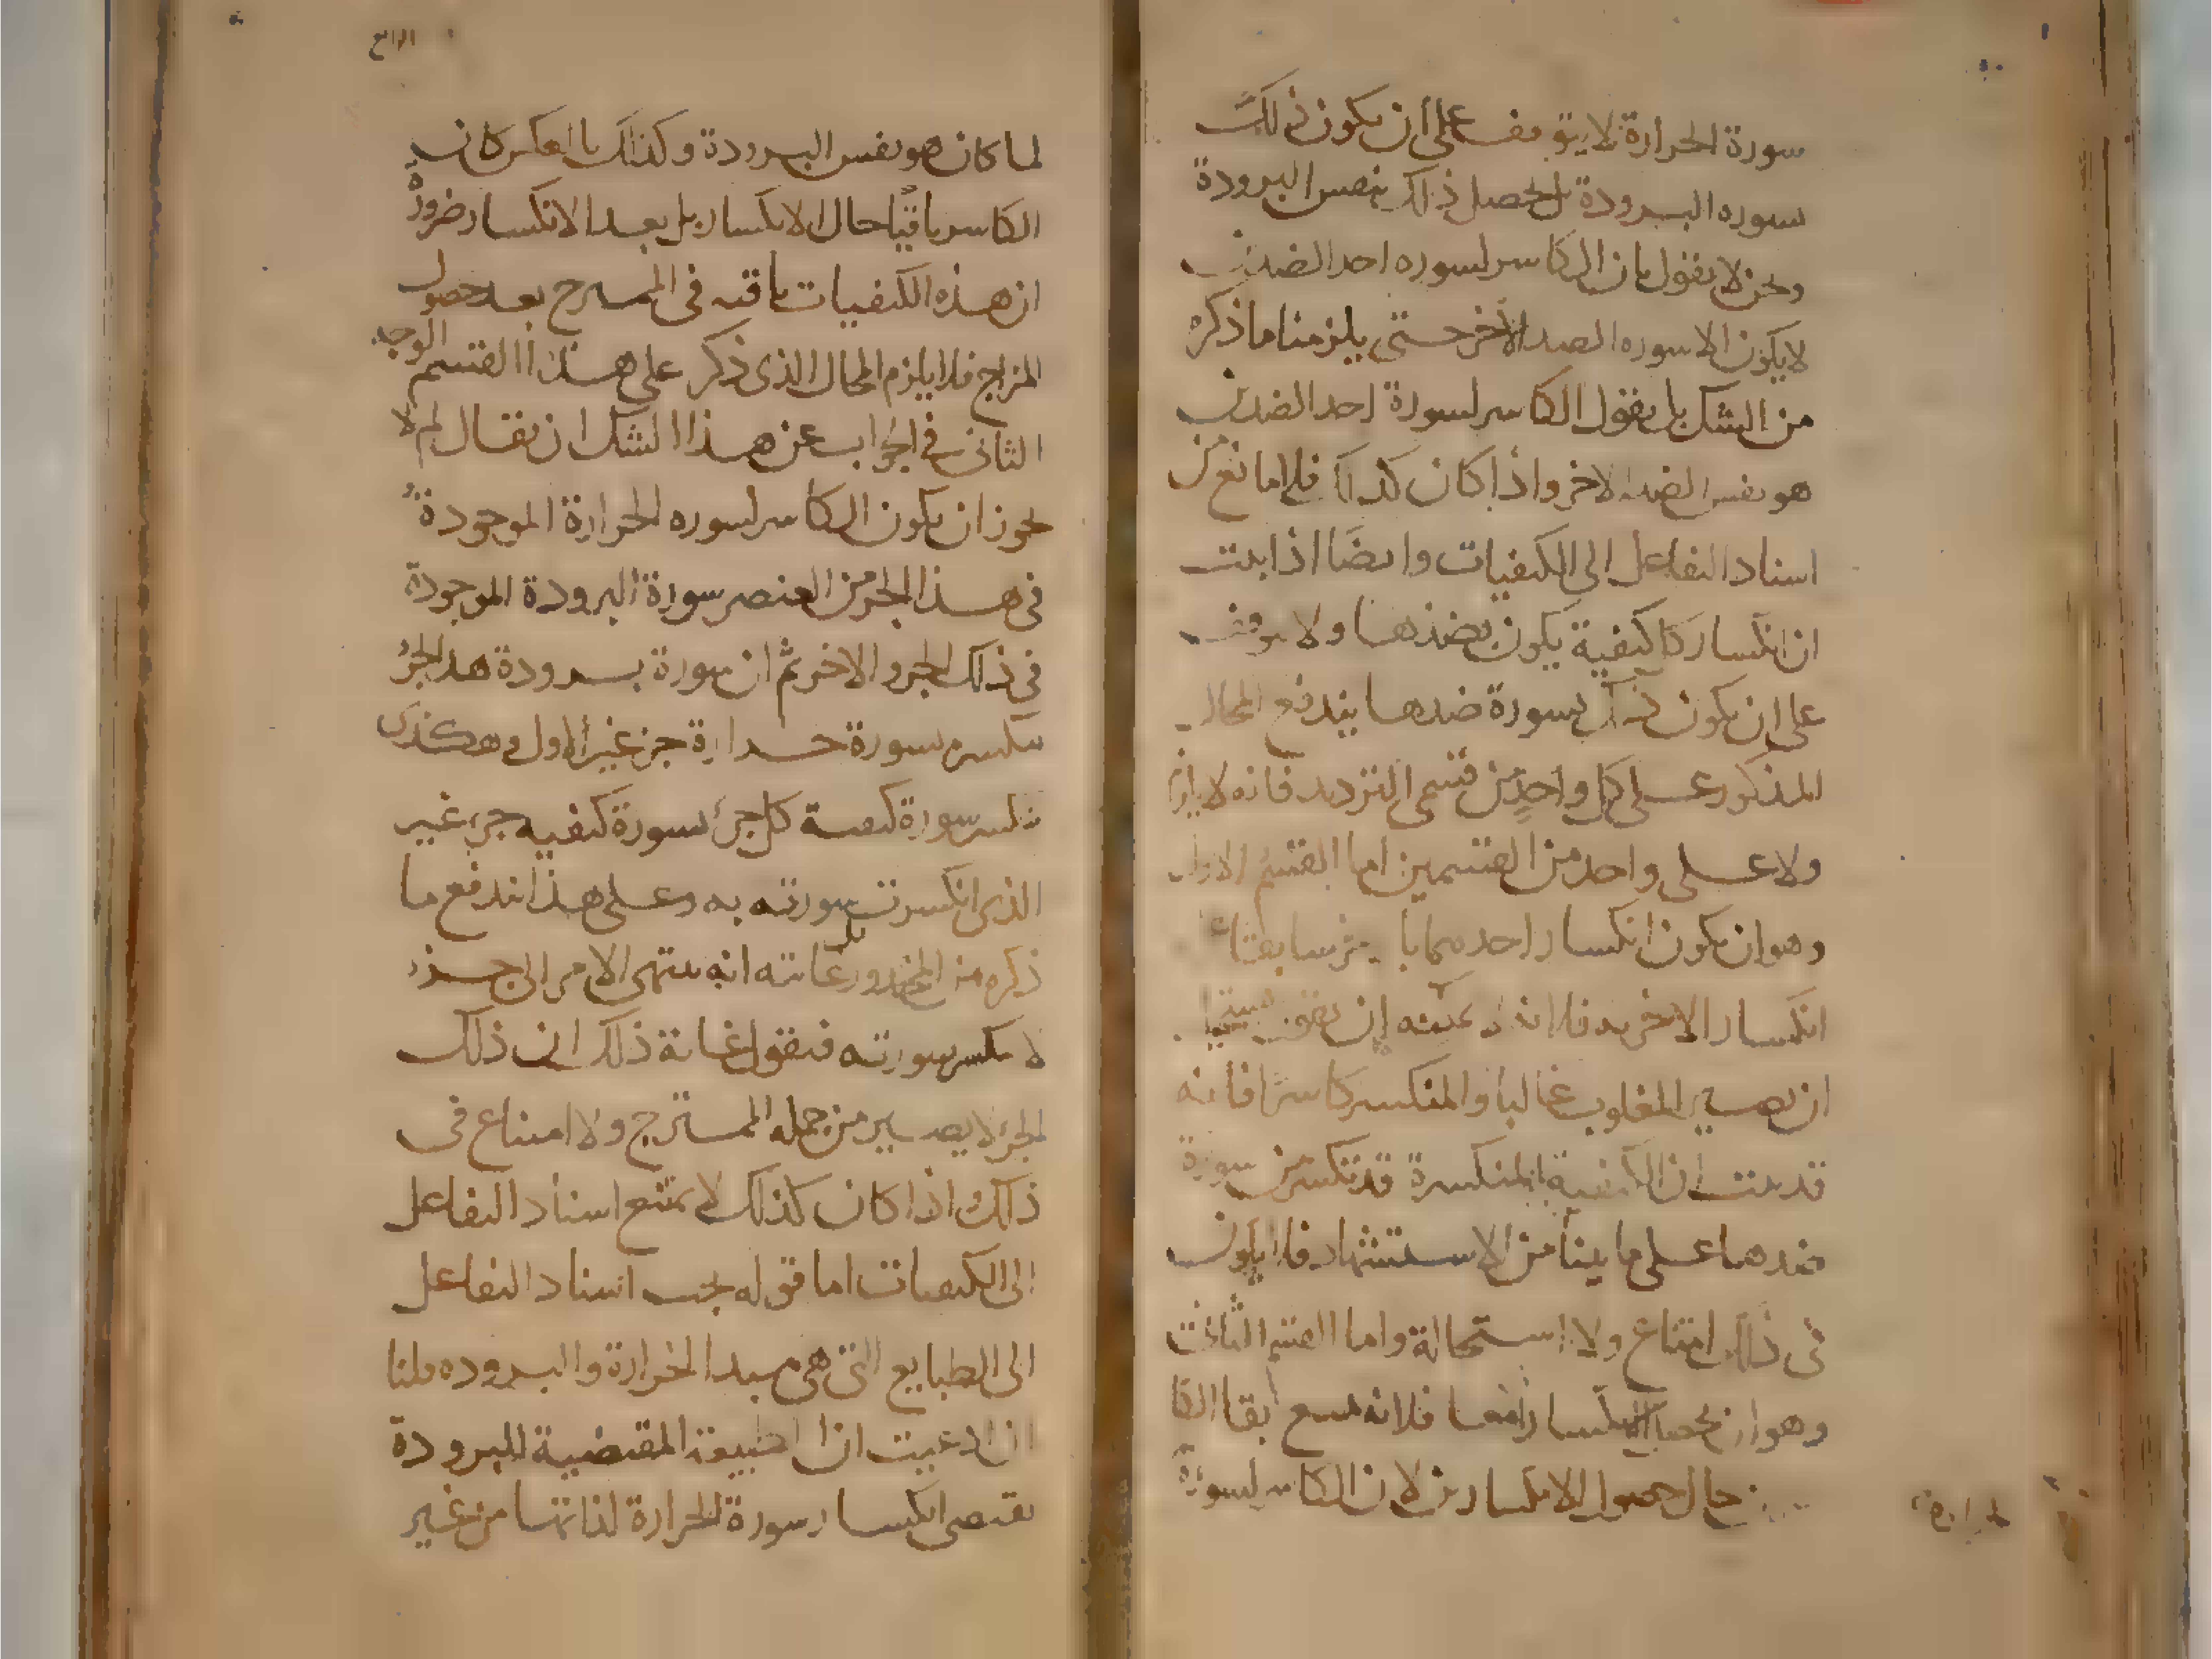 سورة الحرارة لا يتوقف على أن يكون ذلك
سوره البرودة بل يحصل ذلك بنفس البرودة
ونحن لا نقول بان الكاسر لسوره احد الضدين
لا يكون الا سوره الضد الآخر حتى يلزمنا ما ذكره
من الشك بل نقول الكاسر لسورة احد الضدين
هو نفس الضد الاخر واذا كان كذلك فلا مانع من
اسناد التفاعل الى الكيفيات وايضًا اذا ثبت
ان انكسار كل كيفية يكون بضدها ولا يوقف
على ان يكون ذلك بسورة ضدها يندفع المحال
المذكور على كل واحدٍ من قسمي الترديد فانه لا يلزم
ولا على واحد من القسمين اما القسم الاول
وهو ان يكون انكسار احدهما بالآخر سابقًا على
انكسار الاخر به فلان
ان يصير المغلوب غالبا والمنكسر كاسرًا فانه
قد ثبت ان الكيفية المنكسرة قد تكسر من سورة
ضدها على ما بينا من الاستشهاد فلا يكون
في ذلك امتناع ولا استحالة واما القسم الثاني
وهو ان يحصل الانكساران معا فلانه يمنع بقا الكا
حال حصول الانكسارين لان الكاسر لسورة
الحرارة
الرابع
لما كان هو نفس البرودة وكذلك بالعكس كان
الكاسر باقيًا حال الانكسار بل بعد الانكسار ضرورة
ان هذه الكيفيات باقيه في الممتزج بعد حصول
المزاج فلا يلزم المحال الذي ذكر على هذا القسم الوجه
الثاني في الجواب عن هذا الشك ان يقال لم لا
يجوز ان يكون الكاسر لسوره الحرارة الموجودة
في هذا الجزء من العنصر سورة البرودة الموجودة
في ذلك الجزو الاخر ثم ان سورة برودة هذا الجزء
تنكسر بسورة حرارة جزء غير الاول وهكذى
تنكسر سورة كيفية كل جزء بسورة كيفيه جزء غير
الذي انكسرت سورته به وعلى هذا اندفع ما
ذكره من المحذور بل غايته انه ينتهى الامر الى جزء
لا ينكسر سورته فنقول غاية ذلك ان ذلك
الجزء لا يصير من جمله الممتزج ولا امتناع في
ذلك اذا كان كذلك لا يمتنع اسناد التفاعل
الى الكيفيات اما قوله يجب اسناد التفاعل
الى الطبايع التي هي مبدا الحرارة والبروده قلنا
ان ادعيت ان الطبيعة المقتضية للبرودة
يقتضى انكسار سورة الحرارة لذاتها من غير